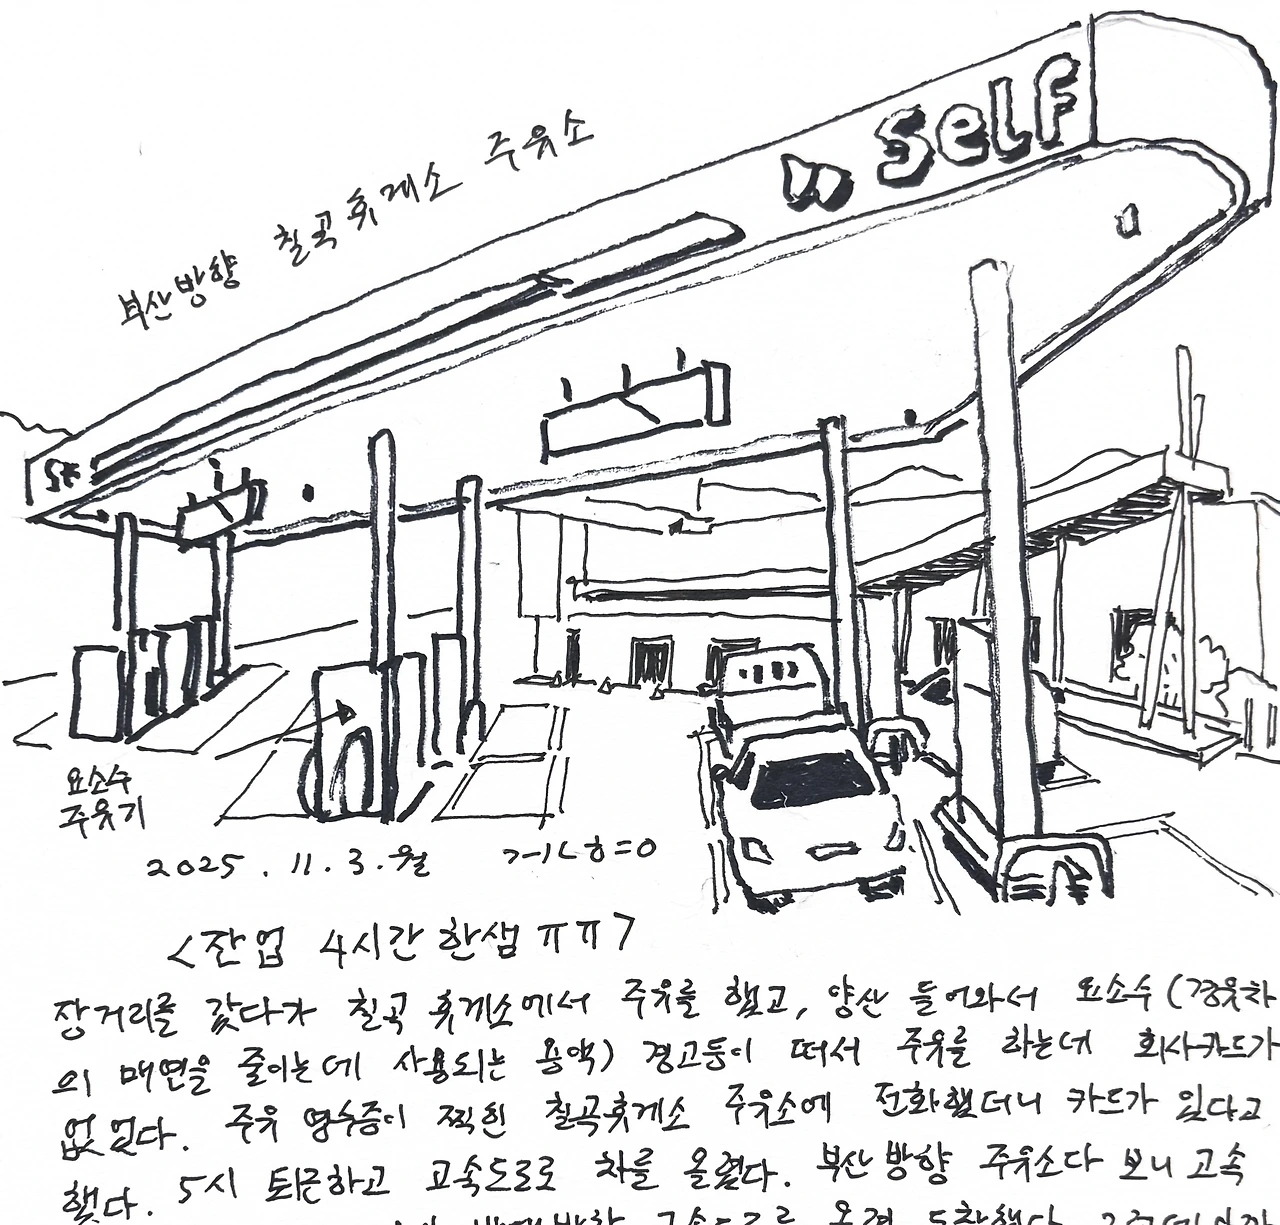 self
부산방향 칠곡휴게소 주유소
요소수
주유기
2025. 11. 3. 월
<잔업 4시간 한샘 ㅠㅠ>
장거리를 갔다가 칠곡 휴게소에서 주유를 했고, 양산 들어와서 요소수 (경유차
의 매연을 줄이는데 사용되는 용액) 경고등이 떠서 주유를 하는데 회사카드가
없었다. 주유 영수증이 찍힌 칠곡휴게소 주유소에 전화했더니 카드가 있다고
했다. 5시 퇴근하고 고속도로로 차를 올렸다. 부산방향 주유소다 보니 고속